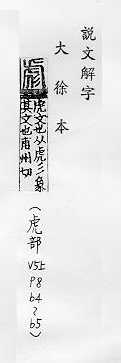 説文解字
大徐本
彪
虎文也从虎彡象
其文也甫州切
(虎部 V5上 P8 b4~b5)